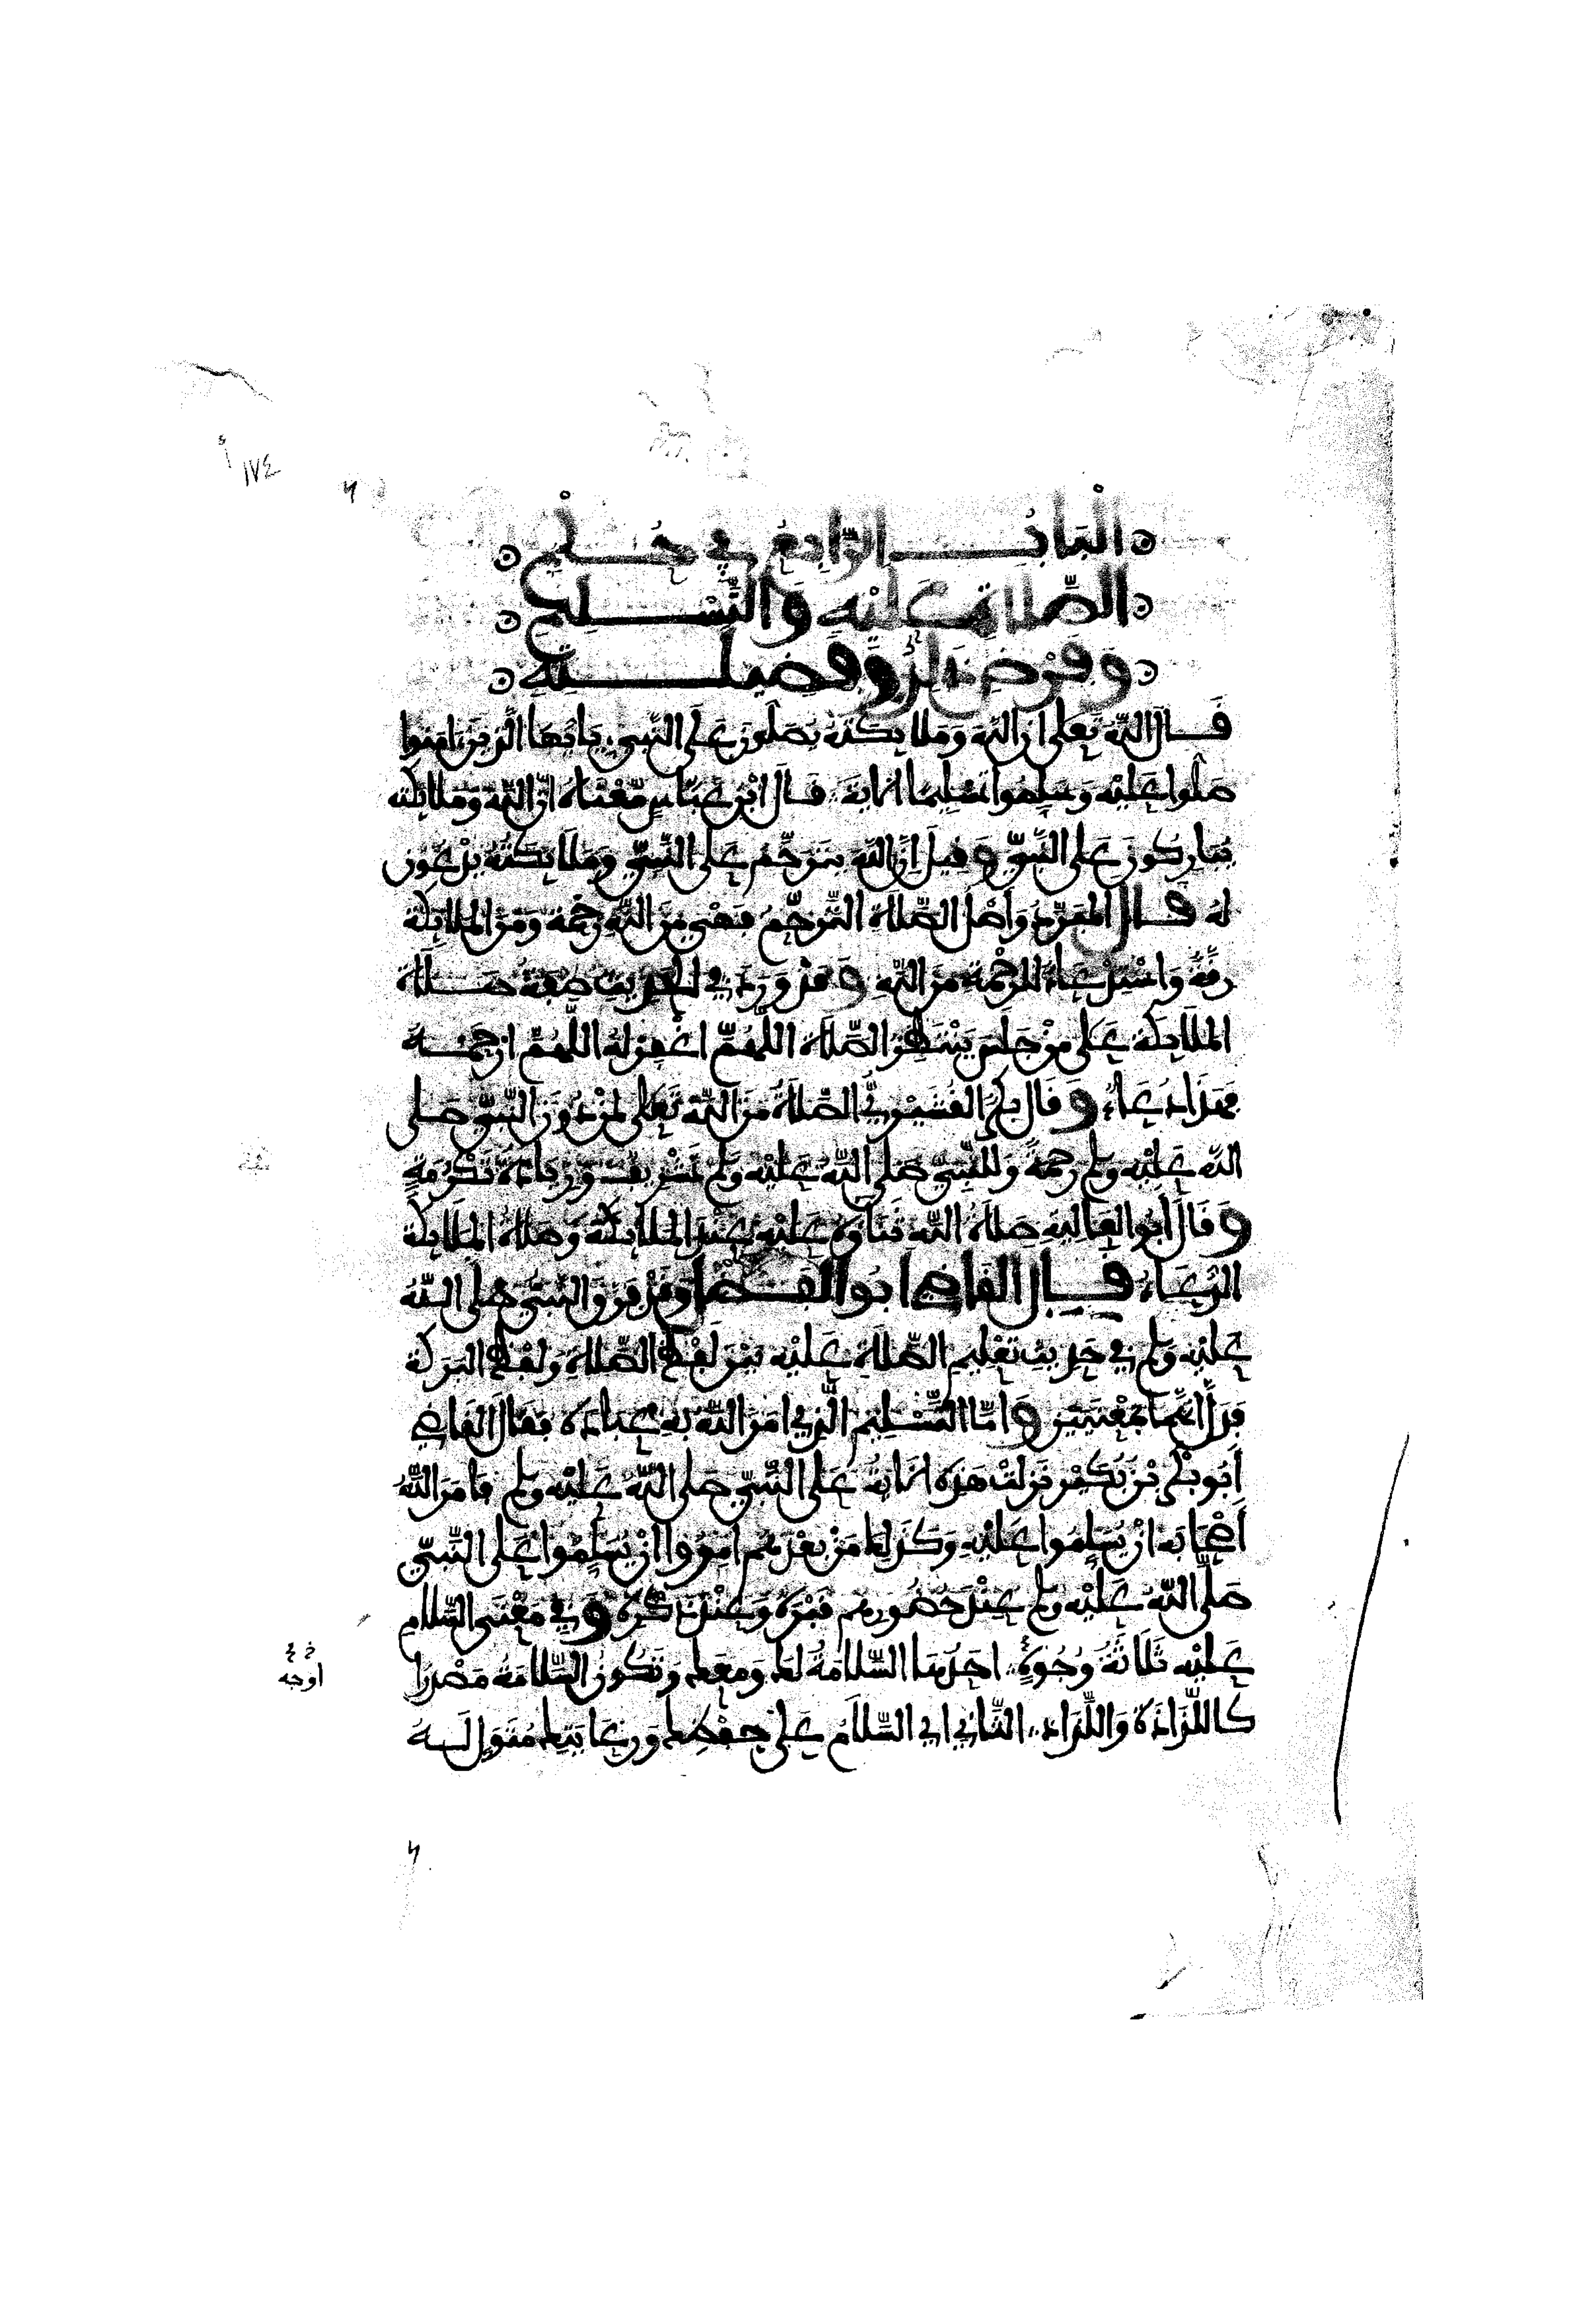 ١٧٤
الْبَابُ الرَّابِعُ في حُكْمِ
الصَّلاةِ عَلَيْهِ وَالتَّسْلِيمِ
وَفَرْضِ ذلِكَ وَفَضِيلَتِهِ
قَالَ اللَّهُ تَعَلى إن اللَّهَ وَمَلايكَتَهُ يُصَلُّونَ عَلَى النَّبِيِ يَايُّهَا الَّذِينَ ءامَنُوا
صَلُّوا عَلَيْهِ وَسَلِّمُوا تَسْلِيمًا الاية قَالَ ابْن عَبَّاسٍ مَعْنَاهُ إنَّ اللَّهَ وَمَلَايكَته
يُبَارِكُونَ عَلَى النَّبِيِّ وَقِيلَ إنَّ اللَّهَ يَتَرَحَّمُ عَلَى النَّبِيِّ وَمَلَايكَتُهُ يَدْعُونَ
لهُ قَالَ المُبَرِّد وَأَصْلُ الصَّلَاةِ التَّرَحُّمُ فَهْيَ مِنَ اللَّهِ رَحْمَةٌ وَمِنَ الْمَلَايكَةِ
رِقَّةٌ وَاسْتِدْعَاءٌ لِلرَّحْمَةِ مِنَ اللَّهِ وَقَدْ وَرَدَ في الحَدِيثِ صِفَةُ صَلَاةِ
الْمَلَايكَةِ عَلَى مَنْ جَلَسَ يَنْتَظِرُ الصَّلَاةَ اللَّهُمَّ اغْفِرْ لَهُ اللَّهُمَّ ارْحَمْهُ
فَهَذَا دُعَاءٌ وَقَالَ بَكْرٌ القُشَيْرِيُّ الصَّلَاةُ مِنَ اللَّهِ تَعَلى لِمَنْ دُونَ النَّبِيِّ صَلى
اللَّه عَلَيْهِ وسلم رَحْمَةٌ وَلِلنَّبِيِّ صَلى اللَّهُ عَلَيْهِ وسلم تَشْرِيفٌ وَزِيَادَةُ تَكْرُمَةٍ
وَقَالَ أَبُو العَالِيَةِ صَلَاةُ اللَّهِ ثَنَاؤُهُ عَلَيْهِ عِنْدَ الْمَلَايكَةِ وَصَلَاةُ الْمَلَايكَةِ
الدُّعَاءُ قَالَ الْقَاضِي أبُو الْفَضْلِ وَقَدْ فَرَقَ النَّبِيُّ صَلَّى اللَّهُ
عَلَيْهِ وسلم في حَدِيثِ تَعْلِيمِ الصَّلَاةِ عَلَيْهِ بَيْنَ لَفْظِ الصَّلَاةِ وَلَفْظِ الْبَرَكَةِ
فَدَلَّ أَنَّهُمَا بِمَعْنَيَيْنِ وَأَمَّا التَّسْلِيمُ الَّذِي أَمَرَ اللَّهُ بِهِ عِبَادَهُ فَقَالَ الْقَاضِي
أَبُو بَكْرِ بْنُ بُكَيْرٍ نَزَلَتْ هَذِهِ الايَةُ عَلَى النَّبِيِّ صَلى اللَّهُ عَلَيْهِ وسلم فَأَمَرَ اللَّهُ
أَصْحَابَهُ أَنْ يُسَلِّمُوا عَلَيْهِ وَكَذَلِكَ مَنْ بَعْدَهُم أُمِرُوا أَنْ يُسَلِّمُوا عَلَى النَّبِيِّ
صَلَّى اللَّهُ عَلَيْهِ وسلم عِنْدَ حُضُورِهِم قَبْرَهُ وَعِنْدَ ذِكْرِهِ وَفِي مَعْنَى السَّلَامِ
عَلَيْهِ ثَلَاثَةُ وُجُوهٍ احَدُهَا السَّلَامَةُ لَكَ وَمَعَكَ وَتَكُونُ السَّلَامَةُ مَصْدَرًا
اوجه
كَاللَّذَاذَةِ وَاللَّذَاذِ الثَّانِي اي السَّلَامُ عَلَى حِفْظِكَ وَرِعَايَتِكَ مُتَوَلٍ لَهُ